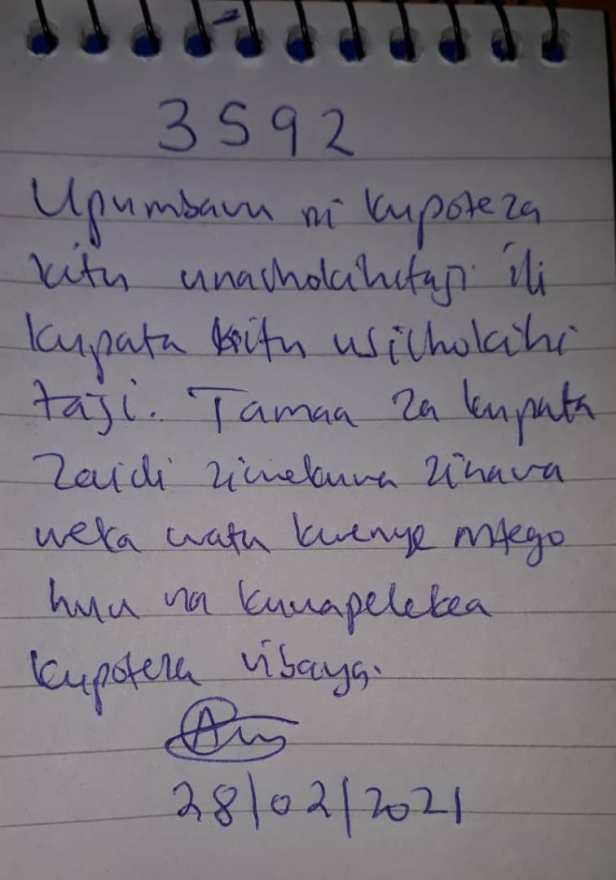 3592
Upumbavu ni kupoteza
kitu unachokihitaji ili
kupata kitu usichokihi
taji. Tamaa za kupata
zaidi zimekuwa zinawa
weka watu kwenye mtego
huu na kuwapelekea
kupoteza vibaya.
28/02/2021